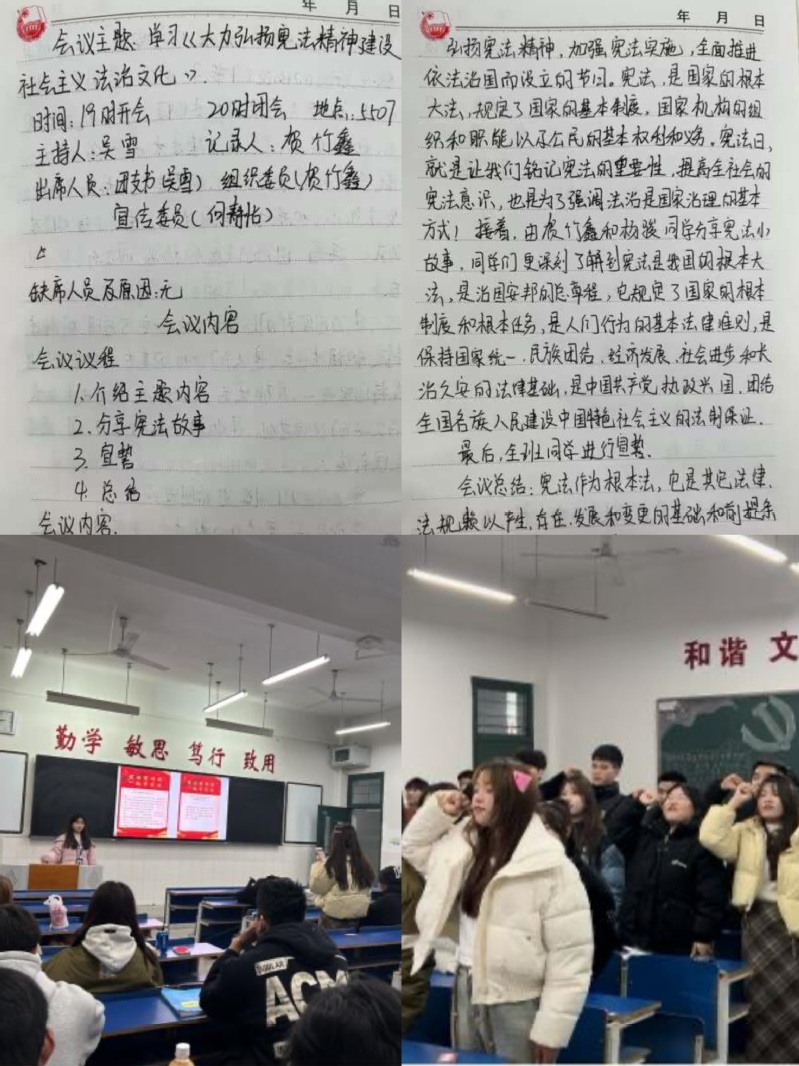 年 月 日
会议主题：学习《大力弘扬宪法精神建设
社会主义法治文化》.
时间：19时开会 20时闭会 地点：5507
主持人：吴雪 记录人：贺竹鑫
出席人员：团支书（吴雪） 组织委员（贺竹鑫）
宣传委员（何静怡）
缺席人员及原因：无
会议内容
会议议程
1.介绍主题内容
2.分享宪法故事
3.宣誓
4.总结
会议内容.
年 月 日
弘扬宪法精神，加强宪法实施，全面推进
依法治国而设立的节日。宪法，是国家的根本
大法，规定了国家的基本制度，国家机构的组
织和职能以及公民的基本权利和义务。宪法日，
就是让我们铭记宪法的重要性，提高全社会的
宪法意识，也是为了强调法治是国家治理的基本
方式！接着，由贺竹鑫和杨骏同学分享宪法小
故事，同学们更深刻了解到宪法是我国的根本大
法，是治国安邦的总章程，它规定了国家的根本
制度和根本任务，是人们行为的基本法律准则，是
保持国家统一、民族团结、经济发展、社会进步和长
治久安的法律基础，是中国共产党执政兴国、团结
全国各族人民建设中国特色社会主义的法制保证.
最后，全班同学进行宣誓.
会议总结：宪法作为根本法，它是其它法律、
法规赖以产生、存在、发展和变更的基础和前提条
勤学 敏思 笃行 致用
ACM
和谐 文